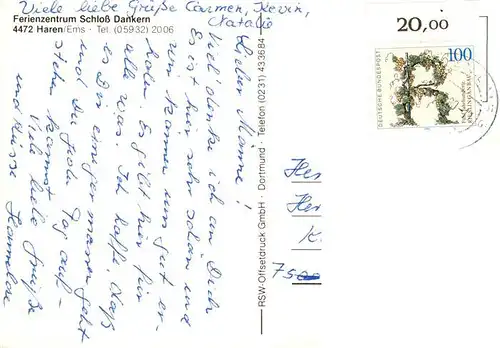 Viele liebe Grüße Carmen, Kevin,
Natalie
Ferienzentrum Schloß Dankern
4472 Haren/Ems · Tel. (05932) 2006
Lieber Männe!
Viel denke ich an Dich
Es ist hier sehr schön und
wir können uns gut er-
holen. Es gibt hier für
alle was. Ich hoffe, daß
es Dir einigermaßen geht
und Du jeden Tag auf-
stehn kannst.
Viele liebe Grüße
und Küsse Hannelore
RSW-Offsetdruck GmbH · Dortmund · Telefon (0231) 433684
20,00
DEUTSCHE BUNDESPOST
100
Her
Her
K
75